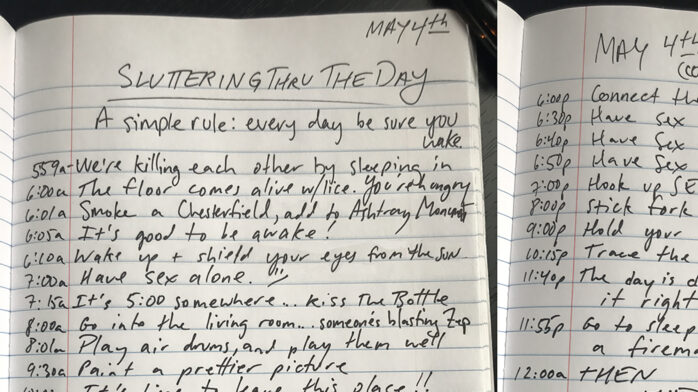 MAY 4th
SLUTTERING THRU THE DAY
A simple rule: every day be sure you
wake
559a - We're killing each other by sleeping in
6:00a The floor comes alive w/lice. You're hungry
6:01a Smoke a Chesterfield, add to Ashtray Monument
6:05a It's good to be awake!
6:10a Wake up + shield your eyes from the sun
7:00a Have sex alone.
7:15a It's 5:00 somewhere... kiss The Bottle
8:00a Go into the living room... someone's blasting Zep
8:01a Play air drums, and play them well
9:30a Paint a prettier picture
It's time to leave this place!!
MAY 4th
6:00p Connect th
6:30p Have sex
6:40p Have sex
6:50p Have sex
7:00p Hook up
8:00p Stick fork
9:00p Hold your
10:15p Trace the
11:40p The day is d
it right
11:55p Go to sleep
a firem
12:00a THEN